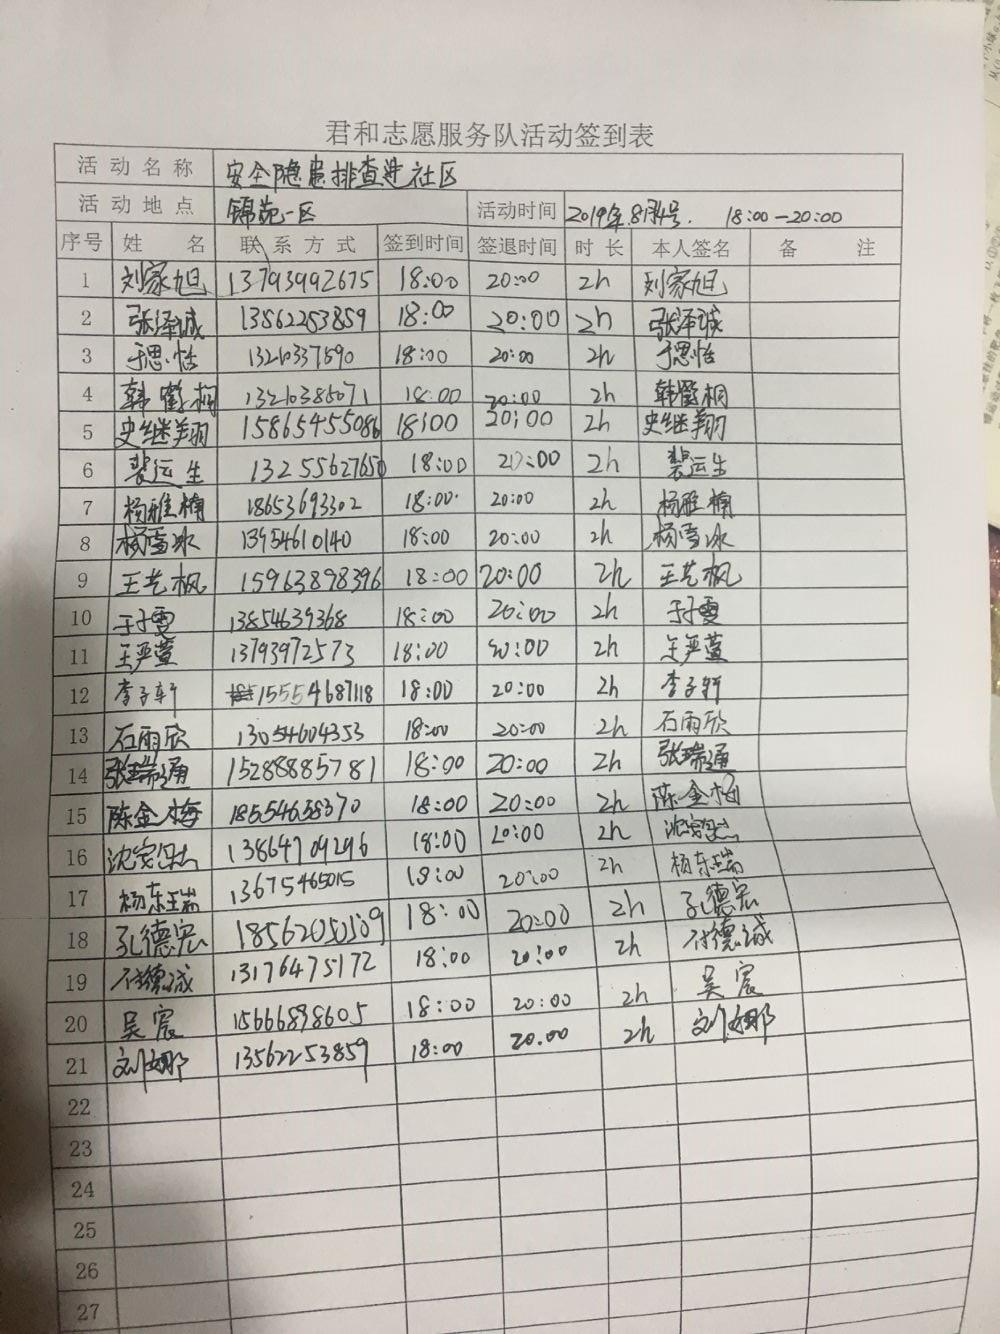 君和志愿服务队活动签到表
活动名称 安全隐患排查进社区
活动地点 锦苑一区 活动时间 2019年8月4号. 18:00-20:00
序号 姓名 联系方式 签到时间 签退时间 时长 本人签名 备注
1 刘家旭 13793992675 18:00 20:00 2h 刘家旭
2 张泽诚 13562253859 18:00 20:00 2h 张泽诚
3 于思恬 13210337590 18:00 20:00 2h 于思恬
4 韩 桐 13210385071 18:00 20:00 2h 韩 桐
5 史继翔 15865455086 18:00 20:00 2h 史继翔
6 裴运生 13255627650 18:00 20:00 2h 裴运生
7 杨雅楠 18653693302 18:00 20:00 2h 杨雅楠
8 杨雪冰 13954610140 18:00 20:00 2h 杨雪冰
9 王艺枫 15963898396 18:00 20:00 2h 王艺枫
10 于子雯 13854639368 18:00 20:00 2h 于子雯
11 王严萱 13793972573 18:00 20:00 2h 王严萱
12 李子轩 15554687118 18:00 20:00 2h 李子轩
13 石雨欣 13054604353 18:00 20:00 2h 石雨欣
14 张瑞通 15288885781 18:00 20:00 2h 张瑞通
15 陈金梅 18554638370 18:00 20:00 2h 陈金梅
16 沈家 13864709296 18:00 20:00 2h 沈家
17 杨东瑞 13675465015 18:00 20:00 2h 杨东瑞
18 孔德宏 18562050509 18:00 20:00 2h 孔德宏
19 付德诚 13176475172 18:00 20:00 2h 付德诚
20 吴宸 15666898605 18:00 20:00 2h 吴宸
21 刘娜 13562253859 18:00 20.00 2h 刘娜
22
23
24
25
26
27